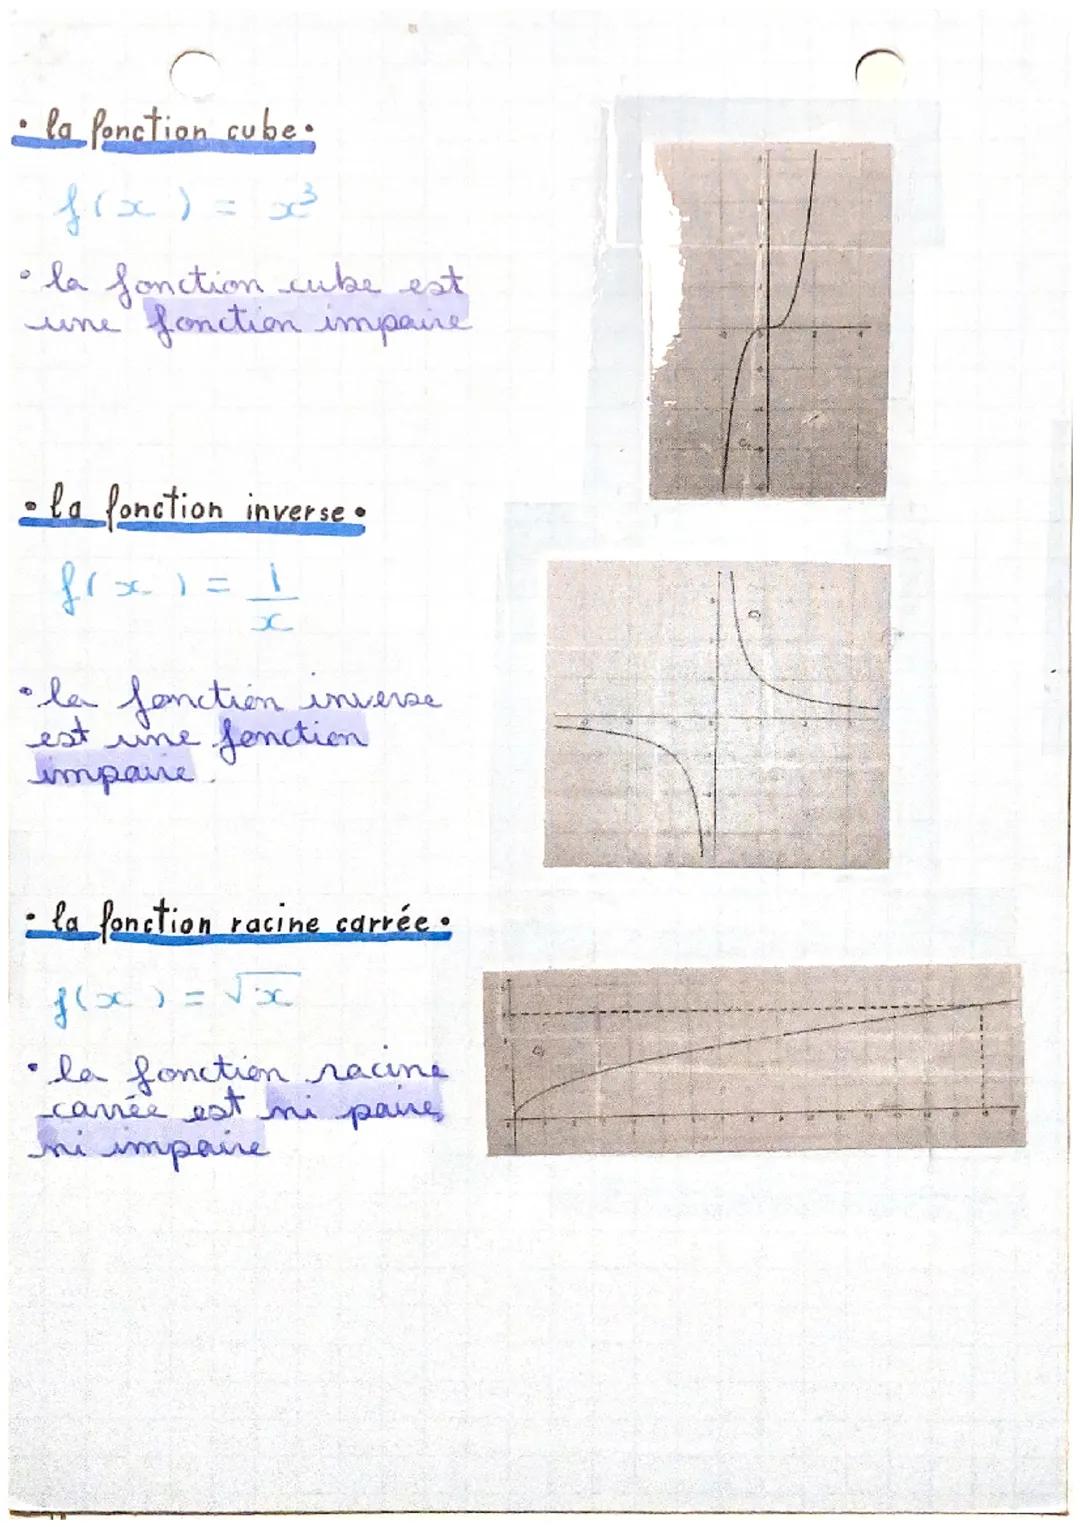 • la fonction cube •
f(x) = x³
• la fonction cube est
une fonction impaire
• la fonction inverse •
f(x) = 1/x
• la fonction inverse
est une fonction
impaire.
• la fonction racine carrée •
f(x) = √x
• la fonction racine
carrée est ni paire,
ni impaire